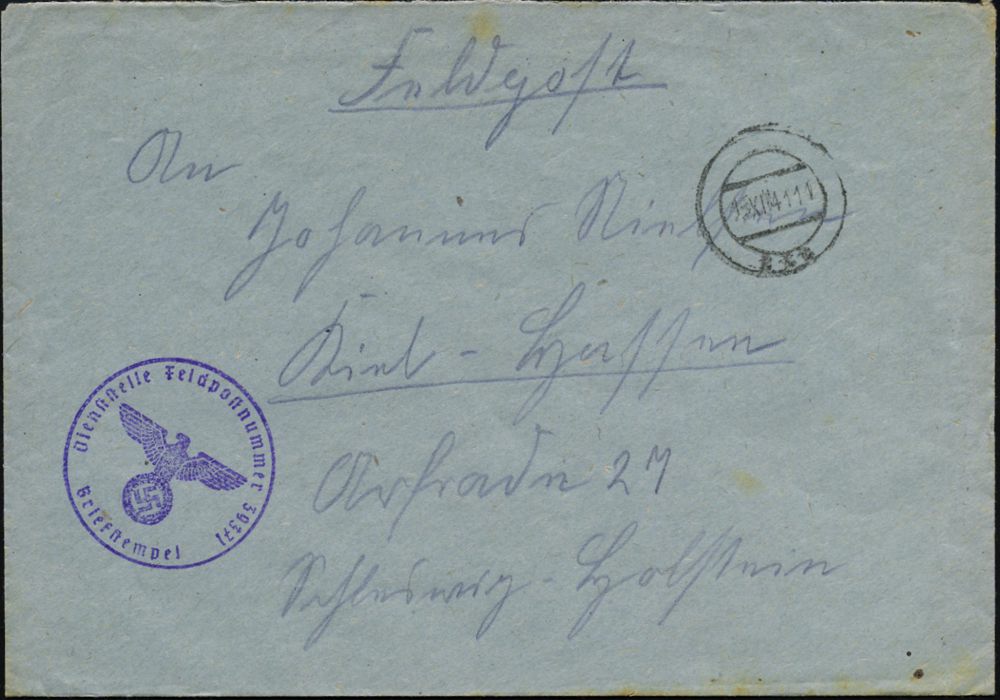 Feldpost
An
Johannes
Kiel - Hassee
27
Schleswig-Holstein
Dienststelle Feldpostnummer 39371
Briefstempel